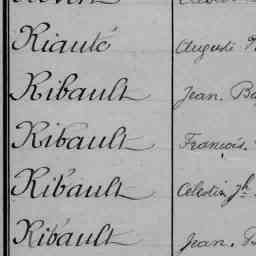 Riauté Auguste
Ribault Jean. Ba
Ribault François.
Ribault Célestin Jh
Ribault Jean. B